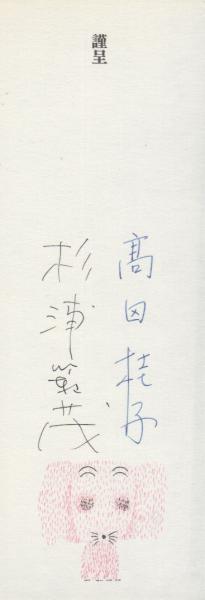 謹呈
髙田桂子
杉浦範茂